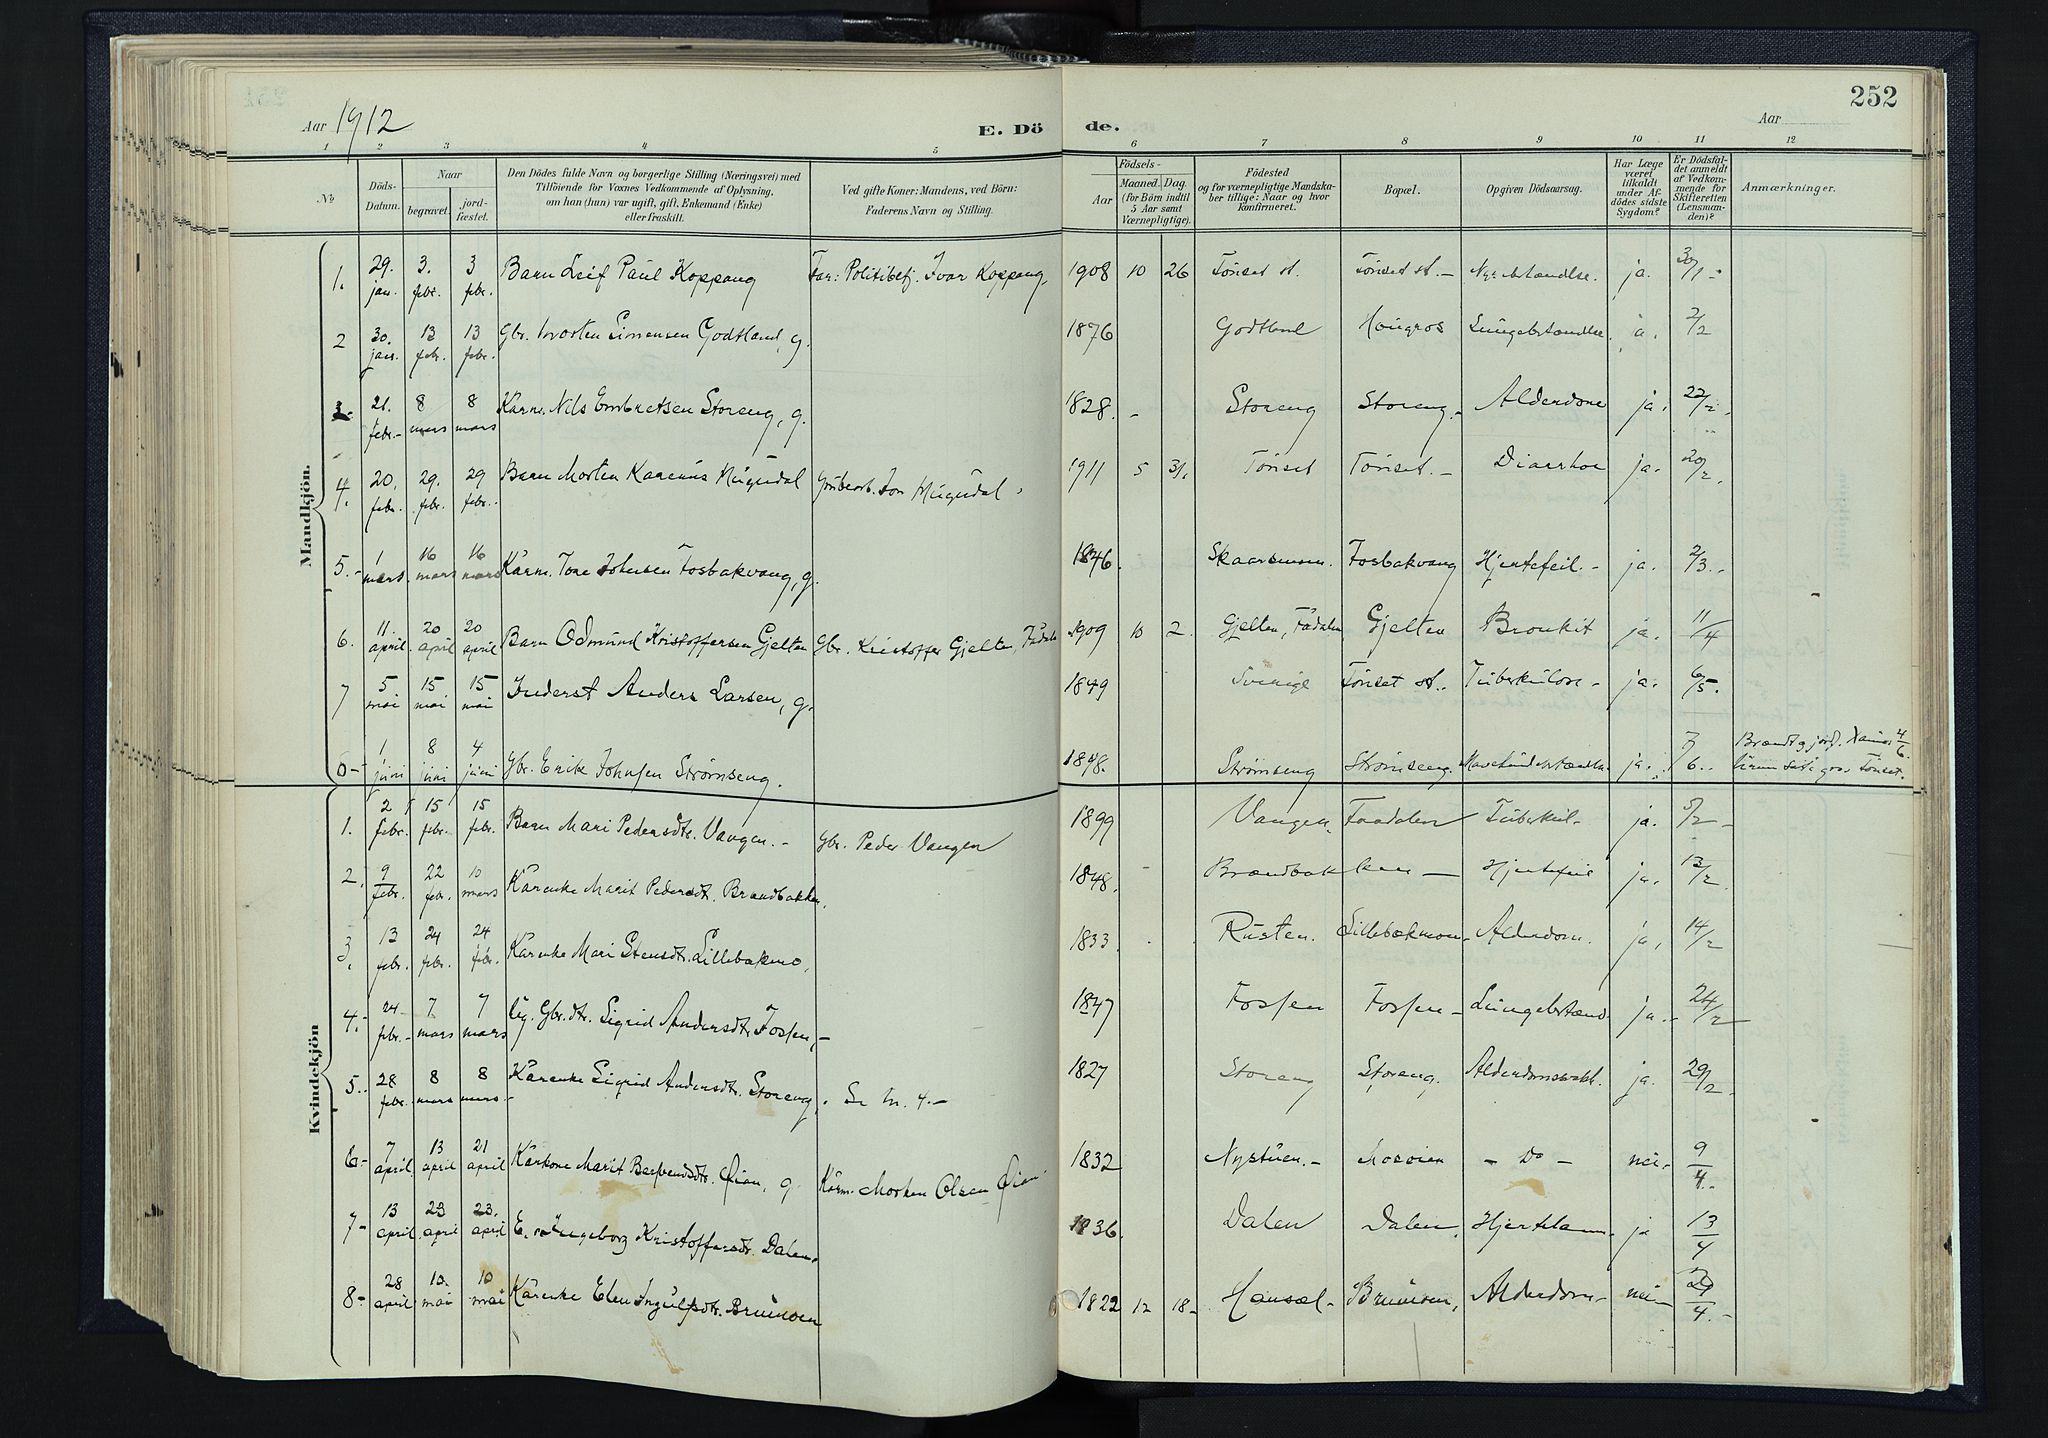 252
Aar 1912
E. Dö de.
Aar
1 2 3 4 5 6 7 8 9 10 11 12
№
Döds-Datum.
Naar
begravet.
jord-fæstet.
Den Dödes fulde Navn og borgerlige Stilling (Næringsvei) med
Tilföiende for Voxnes Vedkommende af Oplysning,
om han (hun) var ugift, gift, Enkemand (Enke)
eller fraskilt.
Ved gifte Koner: Mandens, ved Börn:
Faderens Navn og Stilling.
Födsels-
Aar
Maaned. Dag.
(for Börn indtil
5 Aar samt
Værnepligtige).
Födested
og for værnepligtige Mandska-
ber tillige: Naar og hvor
konfirmeret.
Bopæl.
Opgiven Dödsaarsag.
Har Læge
været
tilkaldt
under Af-
dödes sidste
Sygdom?
Er Dödsfal-
det anmeldt
af Vedkom-
mende for
Skifteretten
(Lensman-
den)?
Anmærkninger.
Mandkjön.
1. 29. jan. 3. febr. 3 febr. Barn Leif Paul Koppang Far: Politibetj. Ivar Koppang. 1908 10 26 Tønset st. Tønset st. - ja. 30/1 -
2 30. jan. 13 febr. 13 febr. Gbr. Morten Simensen Godtland, g. 1876 Godtland Lungebetændelse. ja. 2/2
3- 21. febr. - 8 mars 8 mars Kårm. Nils Embretsen Storeng, g. 1828. - Storeng Storeng. - Alderdom ja. 22/2.
4. 20. febr. 29. febr. 29 febr. Barn Morten Karenus 1911 5 31. Tønset Tønset. - Diarrhoe ja. 20/2.
5. - 1 mars. 16 mars 16 mars Kårm. Tore Johnsen Fosbakvang, g. 1846. Skaarmoen. Fosbakvang Hjertefeil. - ja. 2/3. -
6. 11. april. 20 april 20 april Barn Odmund Kristoffersen Gjelten Gbr. Kristoffer Gjelten, Fådalen 1909 10 2. Gjelten, Fådalen Gjelten Bronkit ja. 11/4
7 5 mai 15 mai 15. mai Inderst Anders Larsen, g. 1849 Sverige Tønset st.. Tuberkulose - ja. 6/5.
1 juni 8 juni 4 juni Gbr. Erik Johnsen Strømseng. 1848. Strømseng Strømseng. ja. 7/6. Tønset.
Kvindekjön
1. 2 febr. 15 febr. 15 febr. Barn Mari Pedersdtr. Vangen. - Gbr. Peder Vangen 1899 Vangen. Faadalen Tuberkul. ja. 5/2 -
2. 9 febr. 22 feb. 10 mars Kårenke Marit Pedersdt. Brandbakken. 1848. - Brændbakken - Hjertefeil ja. 12/2.
3. 13 febr. 24 febr. 24 febr. Kårenke Mari Stensdtr. Lillebakmo. 1833. Rusten. Lillebækmoen. Alderdom. ja. 14/2
4. - 24 febr. - 7 mars 7 mars Ug. Gbr.dtr. Sigrid Andersdtr. Fossen, - 1847 Fossen Fossen - Lungebetænd. ja. - 24/2
5. - 28 febr. 8 mars 8 mars - Kårenke Sigrid Andersdtr. Storeng, Se 4. - 1827 Storeng Storeng. Alderdomssvakh. ja. 29/2.
6 - 7 april 13 april 21 april Kårkone Marit Øian, g. Kårm. Morten Olsen Øian 1832 Nystuen. - Mosoien - Do - nei - 9/4. -
7 - 13 april 23 april 23. april E. Ingeborg Kristoffersdtr. Dalen. 1836. Dalen Dalen. ja 13/4
8 - 28 april 10. mai 10 mai Kårenke Elen Ingulfsdtr. Brumoen 1822 12 18 - Hansæl - Brumoen. Alderdom - nei - 29/4. -